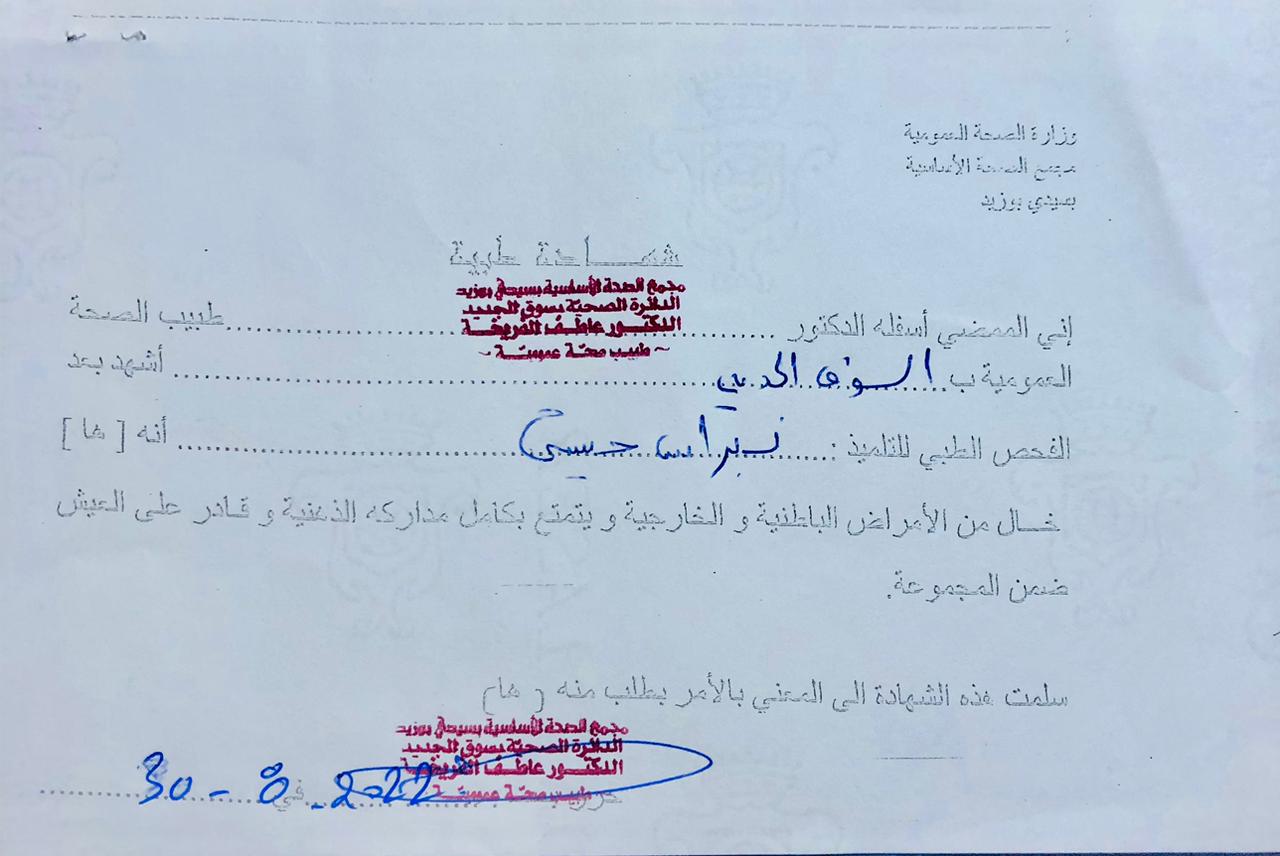 وزارة الصحة العمومية
مجمع الصحة الأساسية
بسيدي بوزيد
شهـــادة طبية
مجمع الصحة الأساسية بسيدي بوزيد
الدائرة الصحيّة بسوق الجديد
إني الممضي أسفله الدكتور .......... الدكتـور عاطـف ..........طبيب الصحة
~ طبيب صحّة عموميّـة ~
العمومية ب السوق الجديد .......... أشهد بعد
الفحص الطبي للتلميذ : نبراس .......... أنه [ ها ]
خـــال من الأمراض الباطنية و الخارجية و يتمتع بكامل مداركه الذهنية و قـادر على العيش
ضمن المجموعة.
سلمت هذه الشهادة الى المعني بالأمر بطلب منه ( ها)
مجمع الصحة الأساسية بسيدي بوزيد
الدائرة الصحيّة بسوق الجديد
الدكتـور عاطـف
طبيب صحّة عموميّـة
في 2022 .......... 30